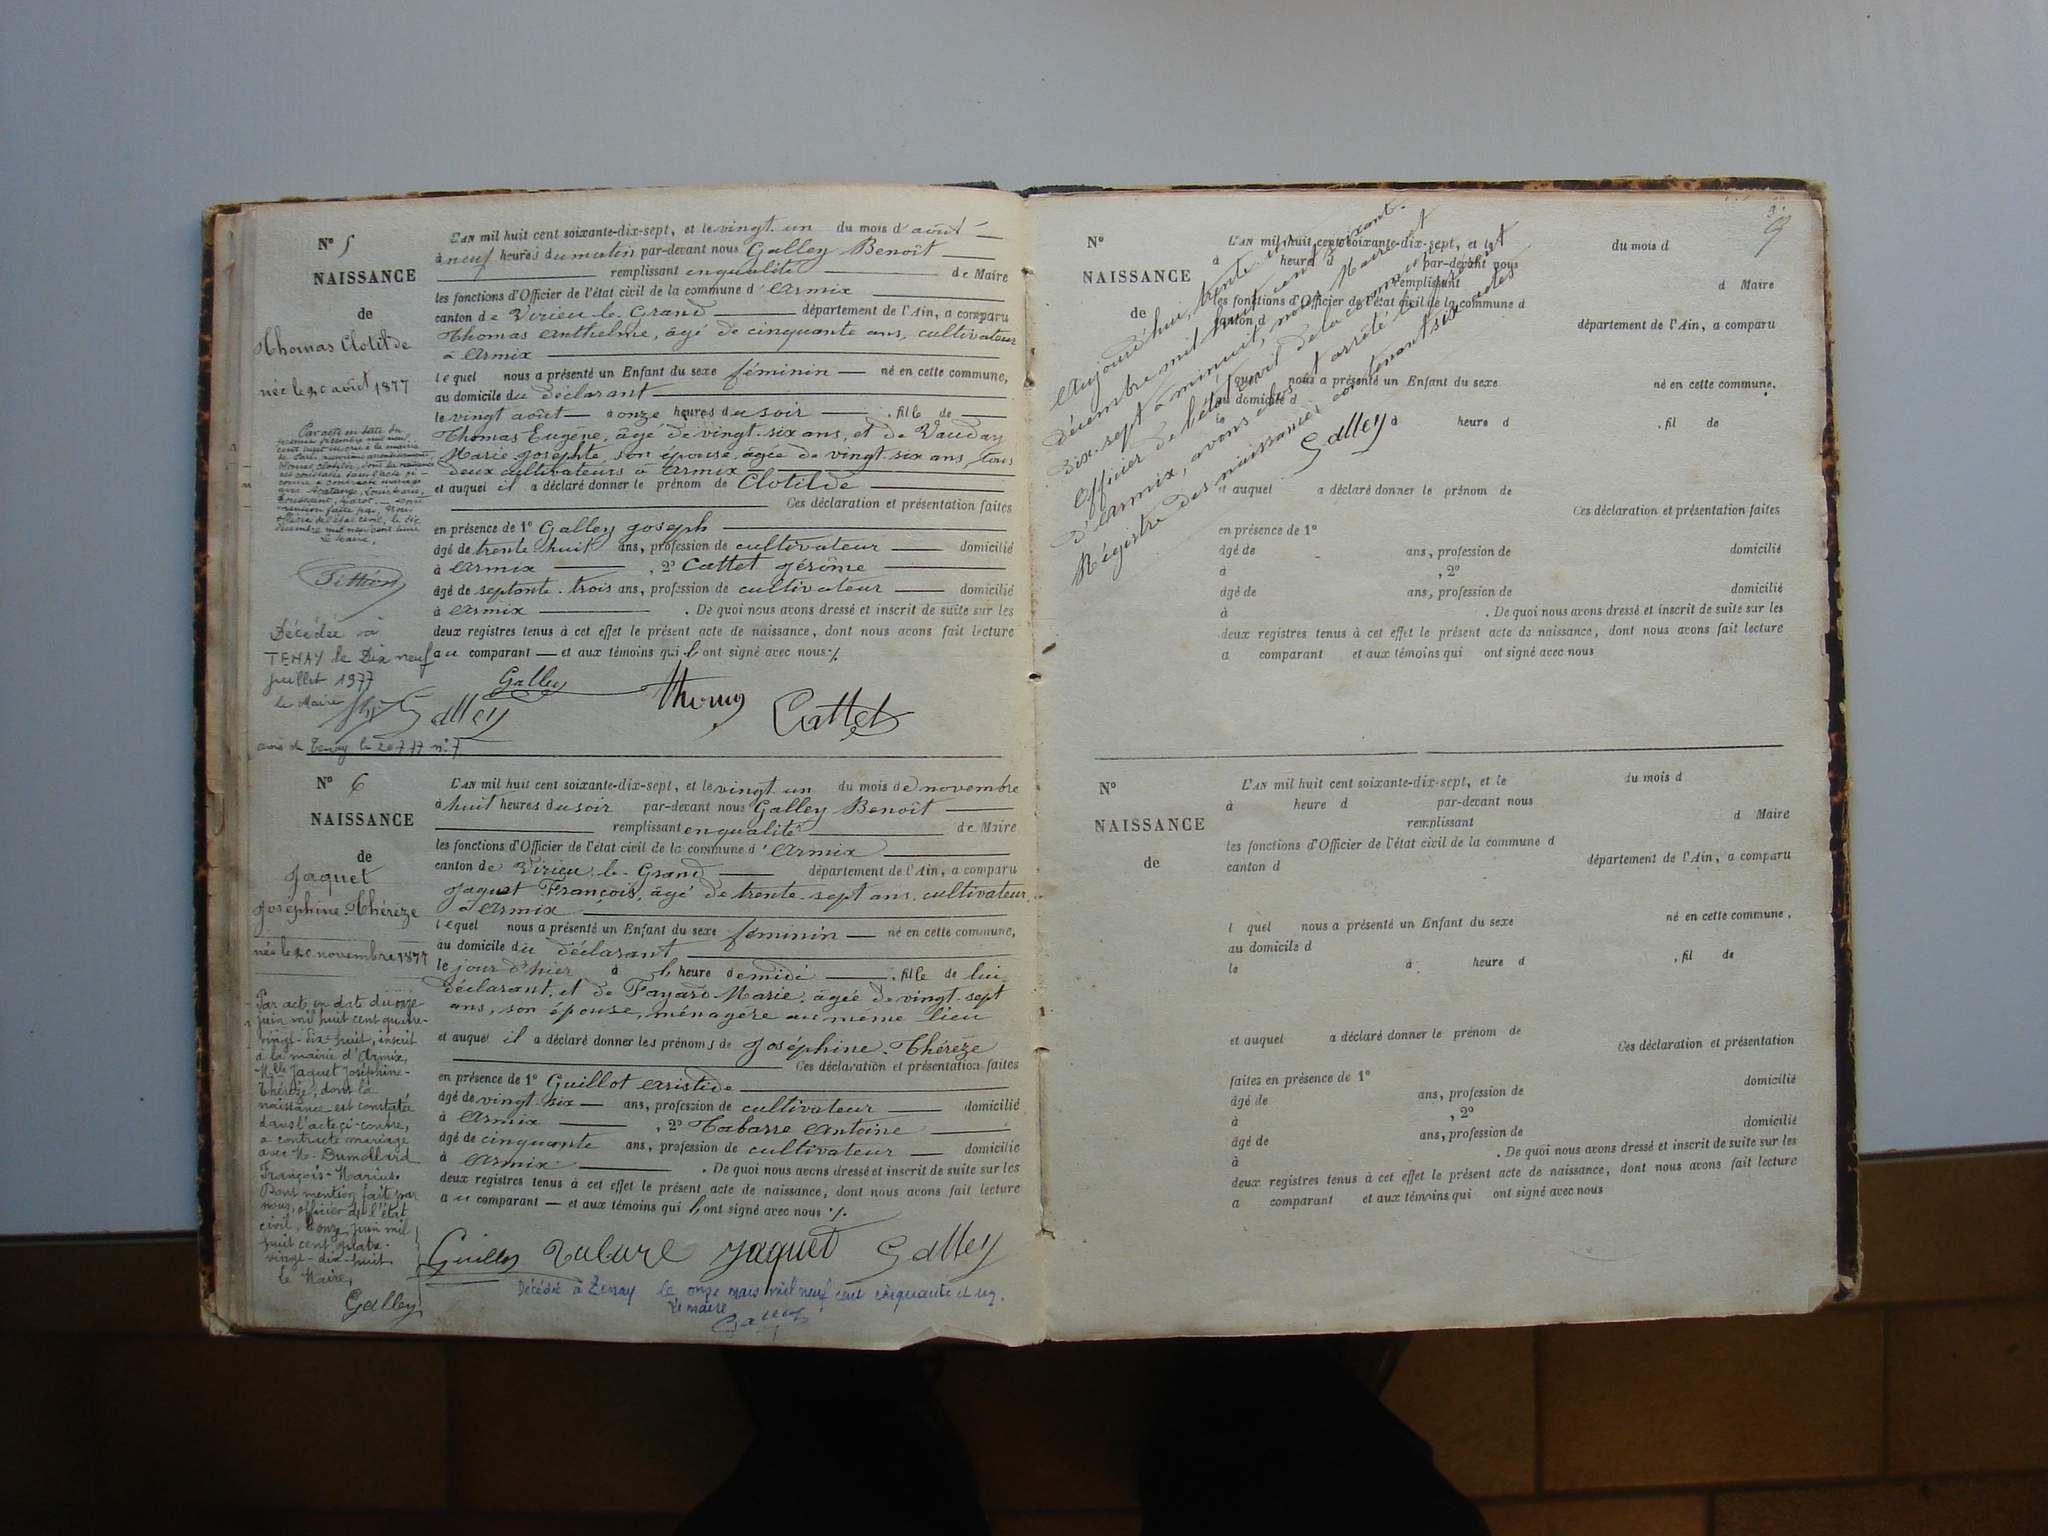 N° 5
NAISSANCE
de
Thomas Clotilde
née le 20 août 1877
Par acte en date du
premier décembre mil neuf
cent onze inscrit à la mairie
de
Thomas Clotilde, dont la naissance
est constatée dans l'acte ci-
contre a contracté mariage
avec
mention faite par Nous
officier de l'état civil, le dix
décembre mil neuf cent onze
Le Maire,
Décédée à
TENAY le Dix neuf
juillet 1977
le Maire
avis de Tenay le 20 7 77 n° 7
L'AN mil huit cent soixante-dix-sept, et le vingt un du mois d'août
à neuf heures du matin par-devant nous Galley Benoît
remplissant en qualité de Maire
les fonctions d'Officier de l'état civil de la commune d'Armix
canton de Virieu-le-Grand département de l'Ain, a comparu
Thomas Anthelme, âgé de cinquante ans, cultivateur
à Armix
lequel nous a présenté un Enfant du sexe féminin né en cette commune,
au domicile du déclarant
le vingt août à onze heures du soir , fille de
Thomas Eugène, âgé de vingt-six ans, et de Vauday
Marie Josephte, son épouse, âgée de vingt-six ans, tous
deux cultivateurs à Armix
et auquel il a déclaré donner le prénom de Clotilde
Ces déclaration et présentation faites
en présence de 1° Galley Joseph
âgé de trente huit ans, profession de cultivateur domicilié
à Armix , 2° Cattet Jérôme
âgé de septante-trois ans, profession de cultivateur domicilié
à Armix . De quoi nous avons dressé et inscrit de suite sur les
deux registres tenus à cet effet le présent acte de naissance, dont nous avons fait lecture
au comparant et aux témoins qui l'ont signé avec nous ./.
Galley Thomas Cattet
Galley
N° 6
NAISSANCE
de
Jaquet
Joséphine-Thérèze
née le 20 novembre 1877
Par acte en date du onze
juin mil huit cent quatre-
vingt-dix-huit, inscrit
à la mairie d'Armix,
Mlle Jaquet Joséphine-
Thérèze, dont la
naissance est constatée
dans l'acte ci-contre,
a contracté mariage
avec M. Dumollard
François-Marius.
Dont mention faite par
nous, officier de l'état
civil, le onze juin mil
huit cent quatre-
vingt-dix-huit
Le Maire,
Galley
L'AN mil huit cent soixante-dix-sept, et le vingt un du mois de novembre
à huit heures du soir par-devant nous Galley Benoît
remplissant en qualité de Maire
les fonctions d'Officier de l'état civil de la commune d'Armix
canton de Virieu-le-Grand département de l'Ain, a comparu
Jaquet François, âgé de trente-sept ans, cultivateur
à Armix
lequel nous a présenté un Enfant du sexe féminin né en cette commune,
au domicile du déclarant
le jour d'hier à l'heure de midi , fille de lui
déclarant, et de Fayard Marie, âgée de vingt-sept
ans, son épouse, ménagère au même lieu
et auquel il a déclaré donner les prénoms de Joséphine-Thérèze
Ces déclaration et présentation faites
en présence de 1° Guillot Aristide
âgé de vingt-six ans, profession de cultivateur domicilié
à Armix , 2° Tabarre Antoine
âgé de cinquante ans, profession de cultivateur domicilié
à Armix . De quoi nous avons dressé et inscrit de suite sur les
deux registres tenus à cet effet le présent acte de naissance, dont nous avons fait lecture
au comparant et aux témoins qui l'ont signé avec nous ./.
Guillot Jaquet Galley
Décédée à Tenay le onze mars mil neuf cent cinquante et un.
Le maire
9
N°
NAISSANCE
de
L'AN mil huit cent soixante-dix-sept, et le du mois d
à heure d par-devant nous
remplissant d Maire
les fonctions d'Officier de l'état civil de la commune d
canton d département de l'Ain, a comparu
l quel nous a présenté un Enfant du sexe né en cette commune,
au domicile d
le à heure d , fil de
et auquel a déclaré donner le prénom de
Ces déclaration et présentation faites
en présence de 1°
âgé de ans, profession de domicilié
à , 2°
âgé de ans, profession de domicilié
à . De quoi nous avons dressé et inscrit de suite sur les
deux registres tenus à cet effet le présent acte de naissance, dont nous avons fait lecture
a comparant et aux témoins qui ont signé avec nous
Aujourd'hui, trente un
décembre mil huit cent soixante-
dix-sept à minuit, nous Maire et
Officier de l'état civil de la commune
d'Armix, avons clos et arrêté le présent
Régistre des naissances contenant six actes
Galley
N°
NAISSANCE
de
L'AN mil huit cent soixante-dix-sept, et le du mois d
à heure d par-devant nous
remplissant d Maire
les fonctions d'Officier de l'état civil de la commune d
canton d département de l'Ain, a comparu
l quel nous a présenté un Enfant du sexe né en cette commune,
au domicile d
le à heure d , fil de
et auquel a déclaré donner le prénom de
Ces déclaration et présentation
faites en présence de 1°
âgé de ans, profession de domicilié
à , 2°
âgé de ans, profession de domicilié
à . De quoi nous avons dressé et inscrit de suite sur les
deux registres tenus à cet effet le présent acte de naissance, dont nous avons fait lecture
a comparant et aux témoins qui ont signé avec nous